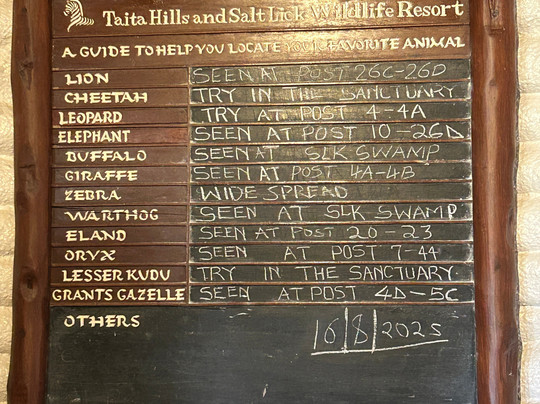 Taita Hills and Salt Lick Wildlife Resort
A GUIDE TO HELP YOU LOCATE YOUR FAVORITE ANIMAL
LION SEEN AT POST 26C-26D
CHEETAH TRY IN THE SANCTUARY
LEOPARD TRY AT POST 4-4A
ELEPHANT SEEN AT POST 10-26D
BUFFALO SEEN AT SLK SWAMP
GIRAFFE SEEN AT POST 4A-4B
ZEBRA WIDE SPREAD
WARTHOG SEEN AT SLK SWAMP
ELAND SEEN AT POST 20-23
ORYX SEEN AT POST 7-44
LESSER KUDU TRY IN THE SANCTUARY.
GRANTS GAZELLE SEEN AT POST 4D-5C
OTHERS 16|8|2025